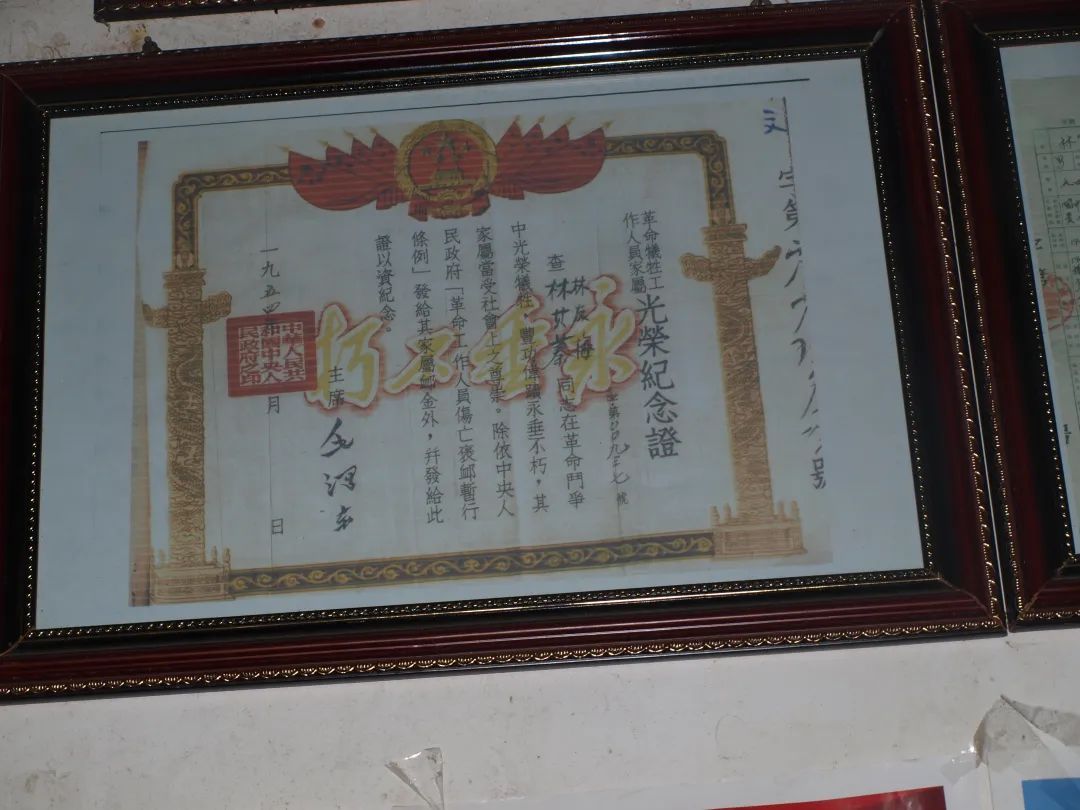 革命犧牲工
作人員家屬
光榮紀念證
查
同志在革命鬥爭
中光榮犧牲,豐功偉蹟永垂不朽,其
家屬當受社會上之尊崇。除依中央人
民政府「革命工作人員傷亡褒卹暫行
條例」發給其家屬卹金外,幷發給此
證以資紀念。
主席 毛澤東
一九五四年 月 日
中華人民共
和國中央人
民政府之印
永垂不朽